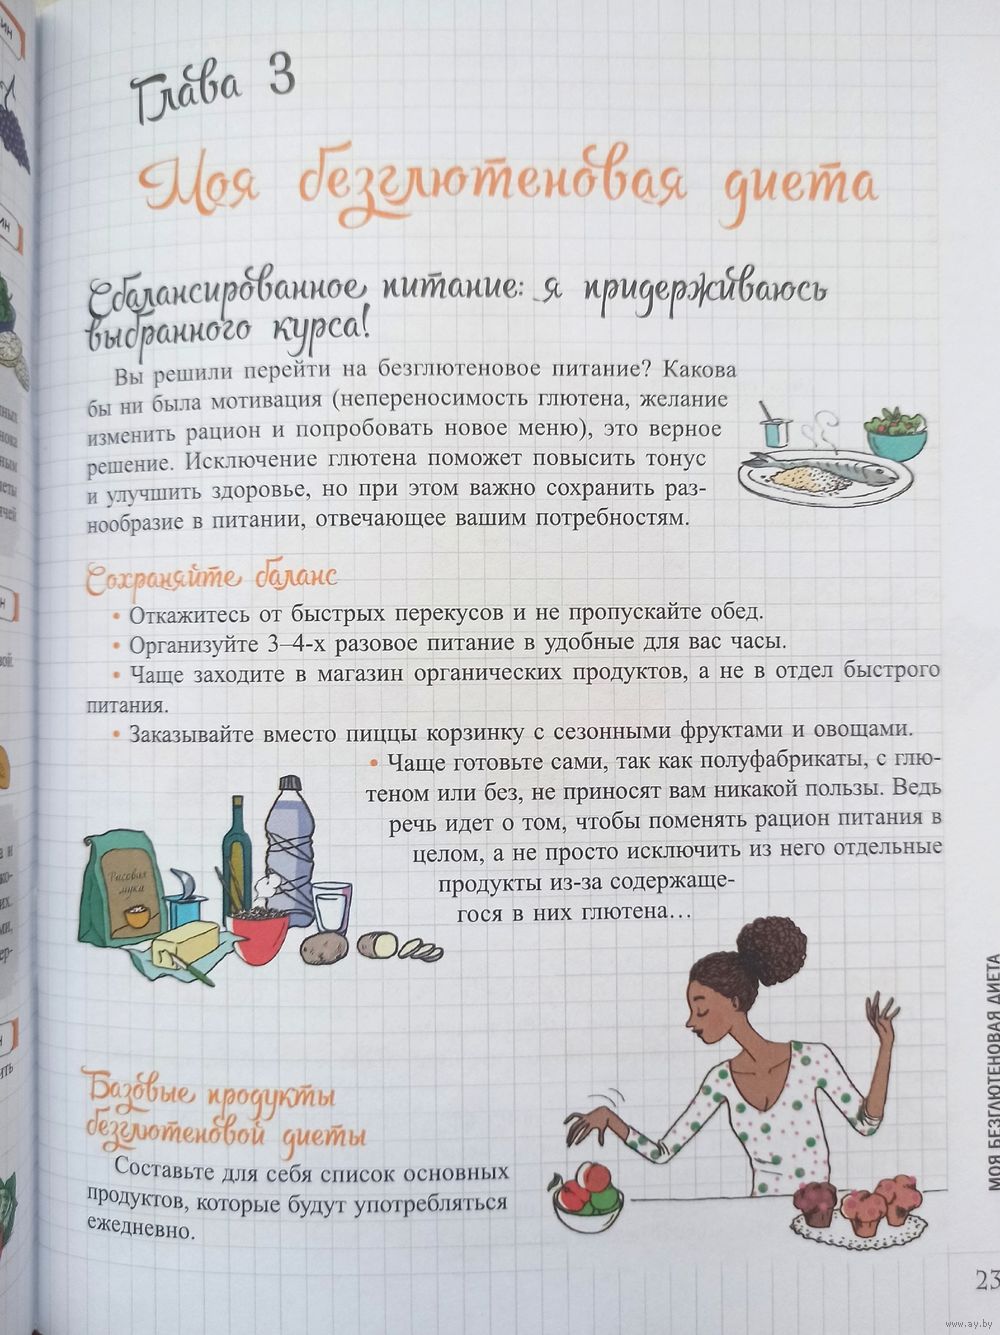 Глава 3
Моя безглютеновая диета
Сбалансированное питание: я придерживаюсь
выбранного курса!
Вы решили перейти на безглютеновое питание? Какова
бы ни была мотивация (непереносимость глютена, желание
изменить рацион и попробовать новое меню), это верное
решение. Исключение глютена поможет повысить тонус
и улучшить здоровье, но при этом важно сохранить раз-
нообразие в питании, отвечающее вашим потребностям.
Сохраняйте баланс
• Откажитесь от быстрых перекусов и не пропускайте обед.
• Организуйте 3–4-х разовое питание в удобные для вас часы.
• Чаще заходите в магазин органических продуктов, а не в отдел быстрого
питания.
• Заказывайте вместо пиццы корзинку с сезонными фруктами и овощами.
• Чаще готовьте сами, так как полуфабрикаты, с глю-
теном или без, не приносят вам никакой пользы. Ведь
речь идет о том, чтобы поменять рацион питания в
целом, а не просто исключить из него отдельные
продукты из-за содержаще-
гося в них глютена...
Рисовая
мука
Базовые продукты
безглютеновой диеты
Составьте для себя список основных
продуктов, которые будут употребляться
ежедневно.
МОЯ БЕЗГЛЮТЕНОВАЯ ДИЕТА
23
www.ay.by